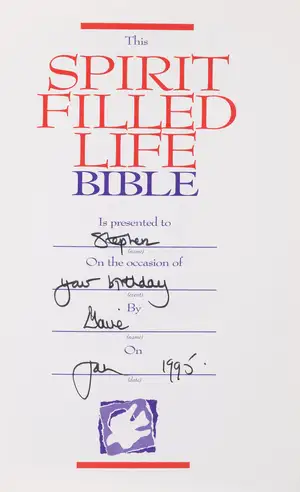 This
SPIRIT
FILLED
LIFE
BIBLE
Is presented to
Stephen
(name)
On the occasion of
your birthday
(event)
By
(name)
On
Jan 1995
(date)